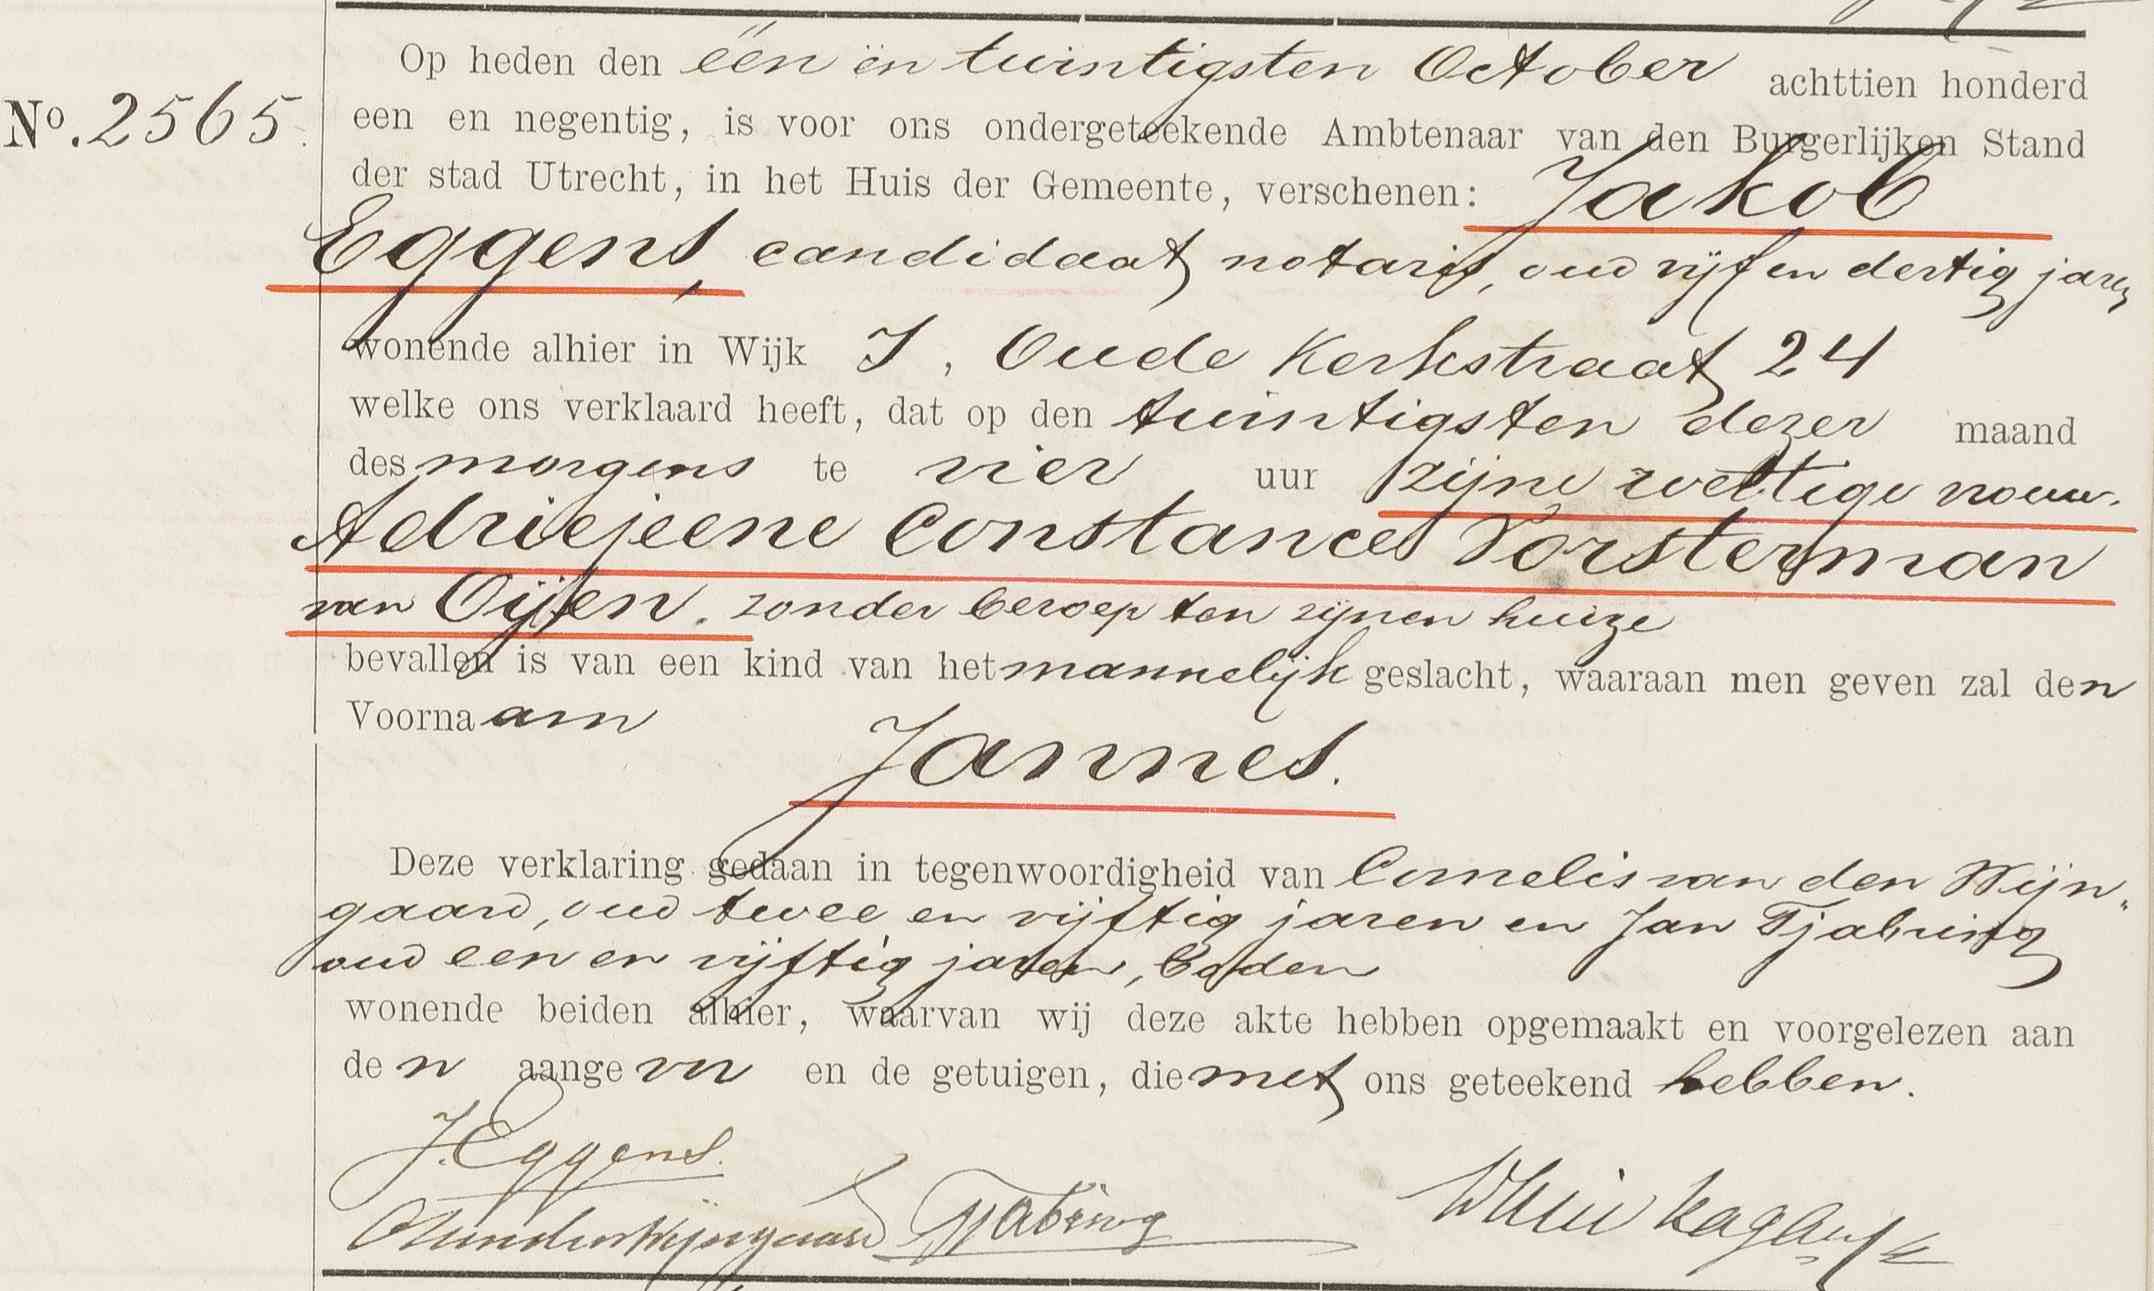 Op heden den één en twintigsten October achttien honderd
No. 2565
een en negentig, is voor ons ondergeteekende Ambtenaar van den Burgerlijken Stand
der stad Utrecht, in het Huis der Gemeente, verschenen: Jakob
Eggens, candidaat notaris, oud vijf en dertig jaren
wonende alhier in Wijk I, Oude Kerkstraat 24
welke ons verklaard heeft, dat op den twintigsten dezer maand
des morgens te vier uur zijne wettige vrouw.
Adriejeene Constance Vorsterman
van Oijen. zonder beroep ten zijnen huize
bevallen is van een kind van het mannelijk geslacht, waaraan men geven zal den
Voornaam
Jannes.
Deze verklaring gedaan in tegenwoordigheid van Cornelis van den Wijn„
gaard, oud twee en vijftig jaren en Jan Tjabring
oud een en vijftig jaren, boden
wonende beiden alhier, waarvan wij deze akte hebben opgemaakt en voorgelezen aan
den aangever en de getuigen, die met ons geteekend hebben.
J. Eggens.
CvandenWijngaard JTjabring